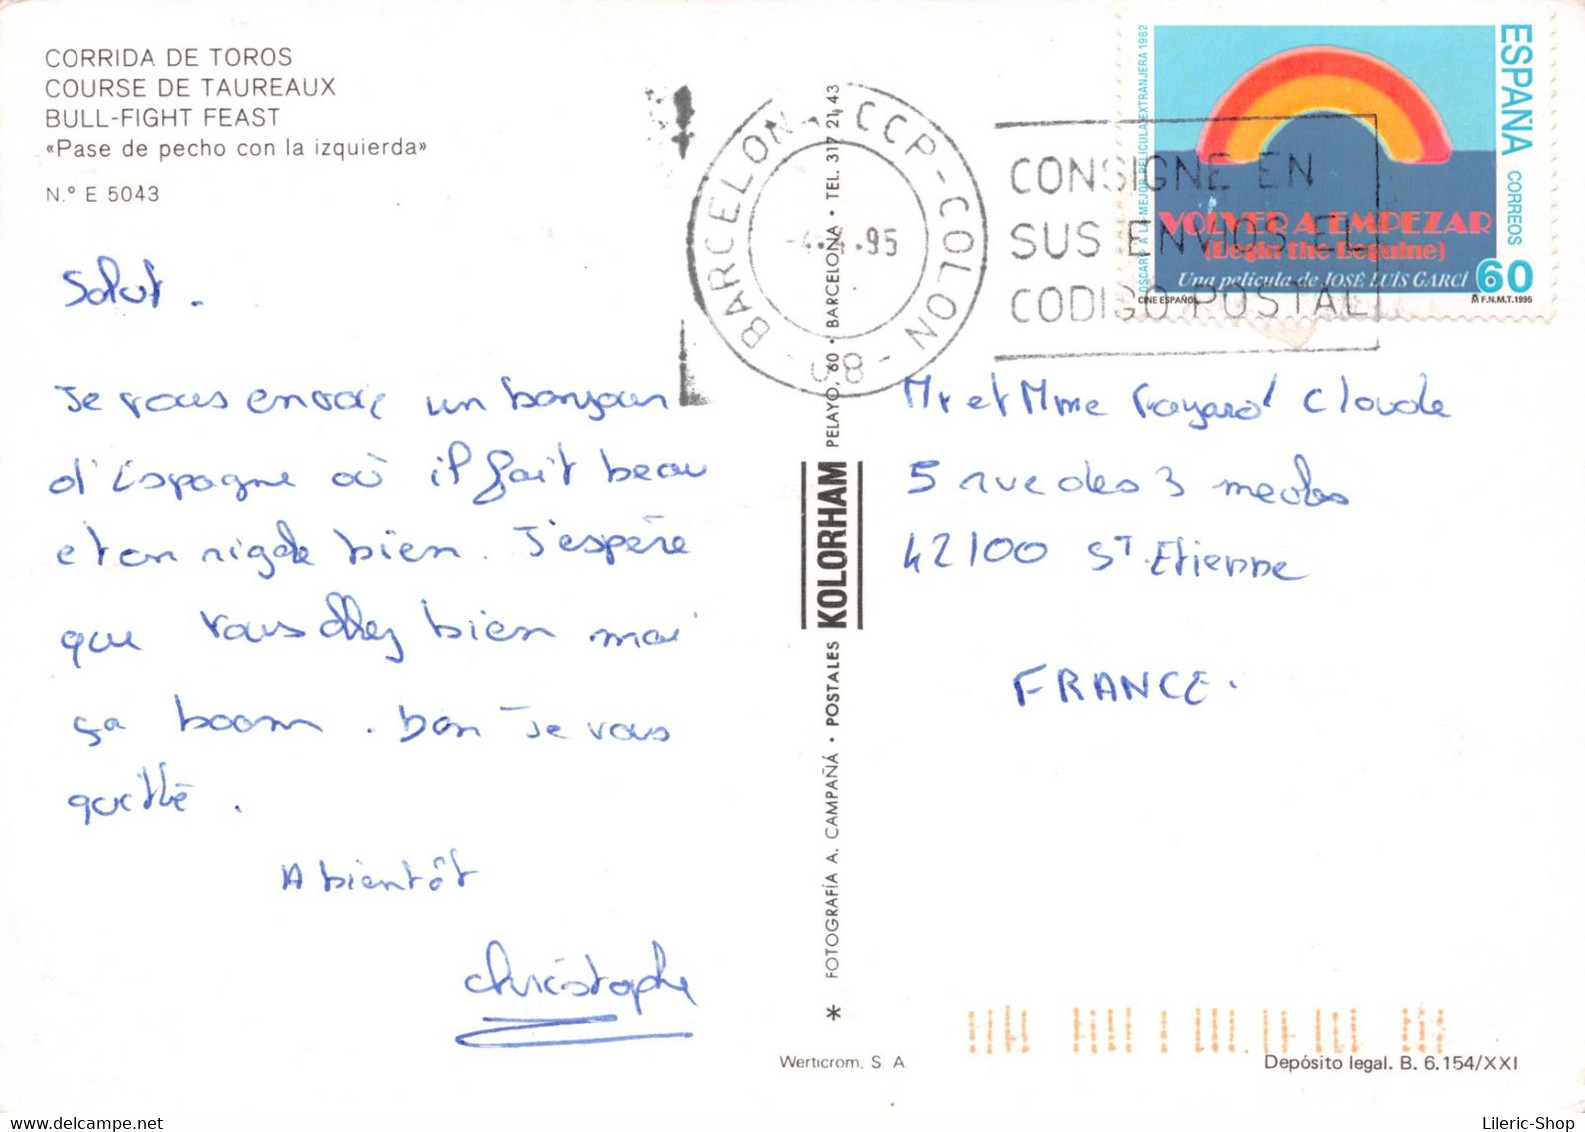 CORRIDA DE TOROS
COURSE DE TAUREAUX
BULL-FIGHT FEAST
«Pase de pecho con la izquierda»
N.º E 5043
Salut.
Je vous envoie un bonjour
d'Espagne où il fait beau
et on rigole bien. J'espère
que vous allez bien moi
ça boom. bon Je vous
quitte.
A bientôt
Christophe
* FOTOGRAFÍA A. CAMPAÑÁ • POSTALES KOLORHAM PELAYO, 60 • BARCELONA • TEL. 317 21 43
Werticrom, S. A
BARCELONA - CCP - COLON - 08 -
95
CONSIGNE EN
SUS ENVIOS EL
CODIGO POSTAL
ESPAÑA
CORREOS
OSCAR A LA MEJOR PELICULA EXTRANJERA 1982
VOLVER A EMPEZAR
(Begin the Beguine)
Una película de JOSÉ LUIS GARCÍ
60
CINE ESPAÑOL
F.N.M.T. 1995
Mr et Mme Fayard Claude
5 rue des 3 meules
42100 ST Etienne
FRANCE.
Depósito legal. B. 6.154/XXI
Lileric-Shop